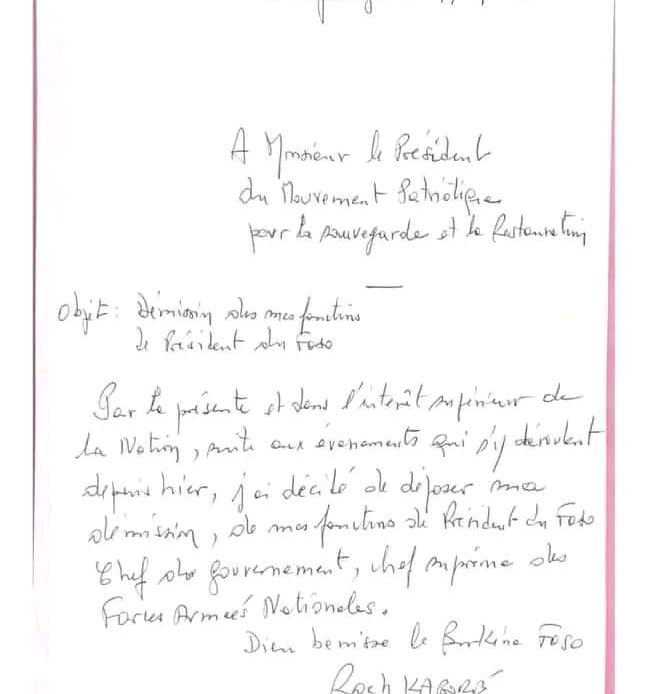 A Monsieur le Président
du Mouvement Patriotique
pour la sauvegarde et la Restauration
Objet: Démission de mes fonctions
de Président du Faso
Par la présente et dans l'interêt supérieur de
la Nation, suite aux évenements qui s'y déroulent
depuis hier, j'ai décidé de déposer ma
démission, de mes fonctions de Président du Faso
Chef du gouvernement, chef suprême des
Forces Armées Nationales.
Dieu benisse le Burkina Faso
Roch KABORÉ